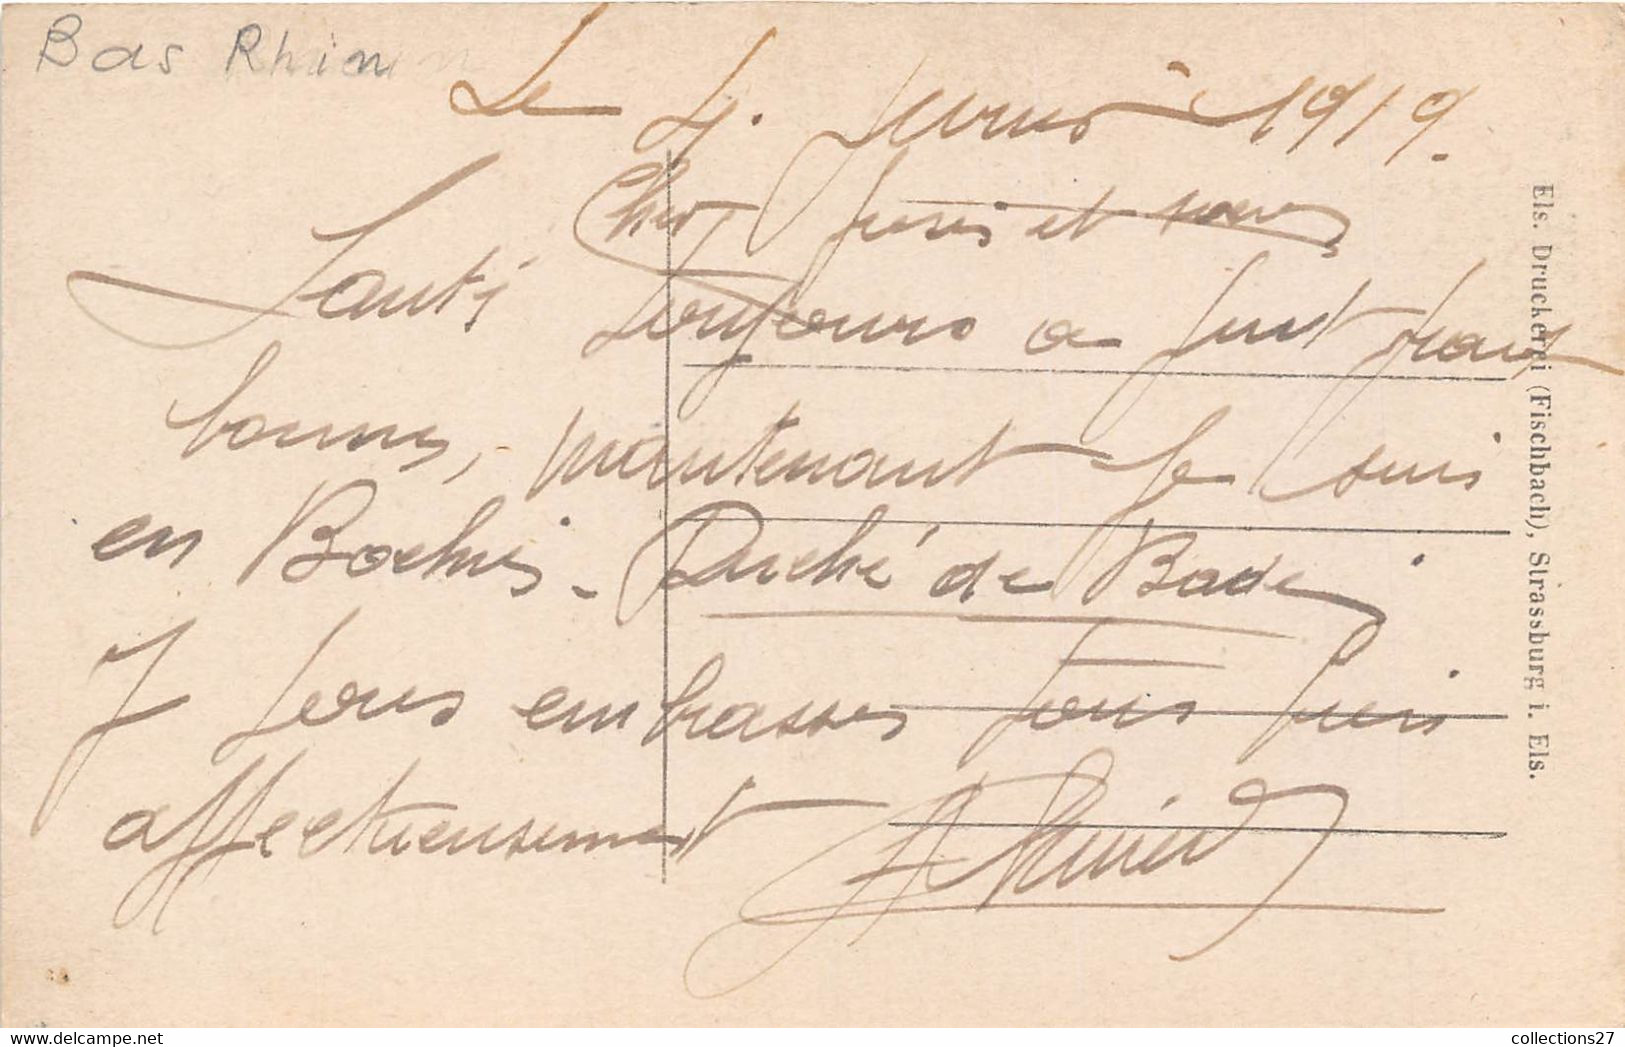 Bas Rhin
Le 4. Fevrier 1919.
Cher frere et soeur
Santé toujours a fait
bonne, maintenant je suis
en Bochie - Duché de Bade
Je vous embrasse tous bien
affectueusement
Els. Druckerei (Fischbach), Strassburg i. Els.
collections27